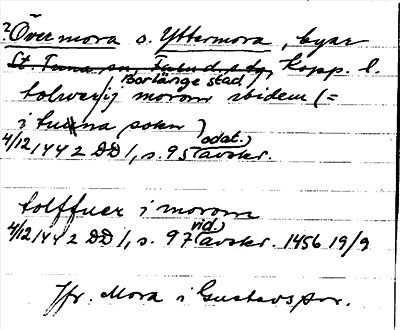 ?Övermora o. Yttermora, byar
St. Tuna sn, Falund. fdg, Kopp. l.
Borlänge stad,
tolwerij morom ibidem (=
i tuna soken)
4/12 1442 DD 1, s. 95 (odat.) avskr.
tolffuer i morom
4/12 1442 DD 1, s. 97 (vid.) avskr. 1456 19/9
Jfr. Mora i Gustavs sn.